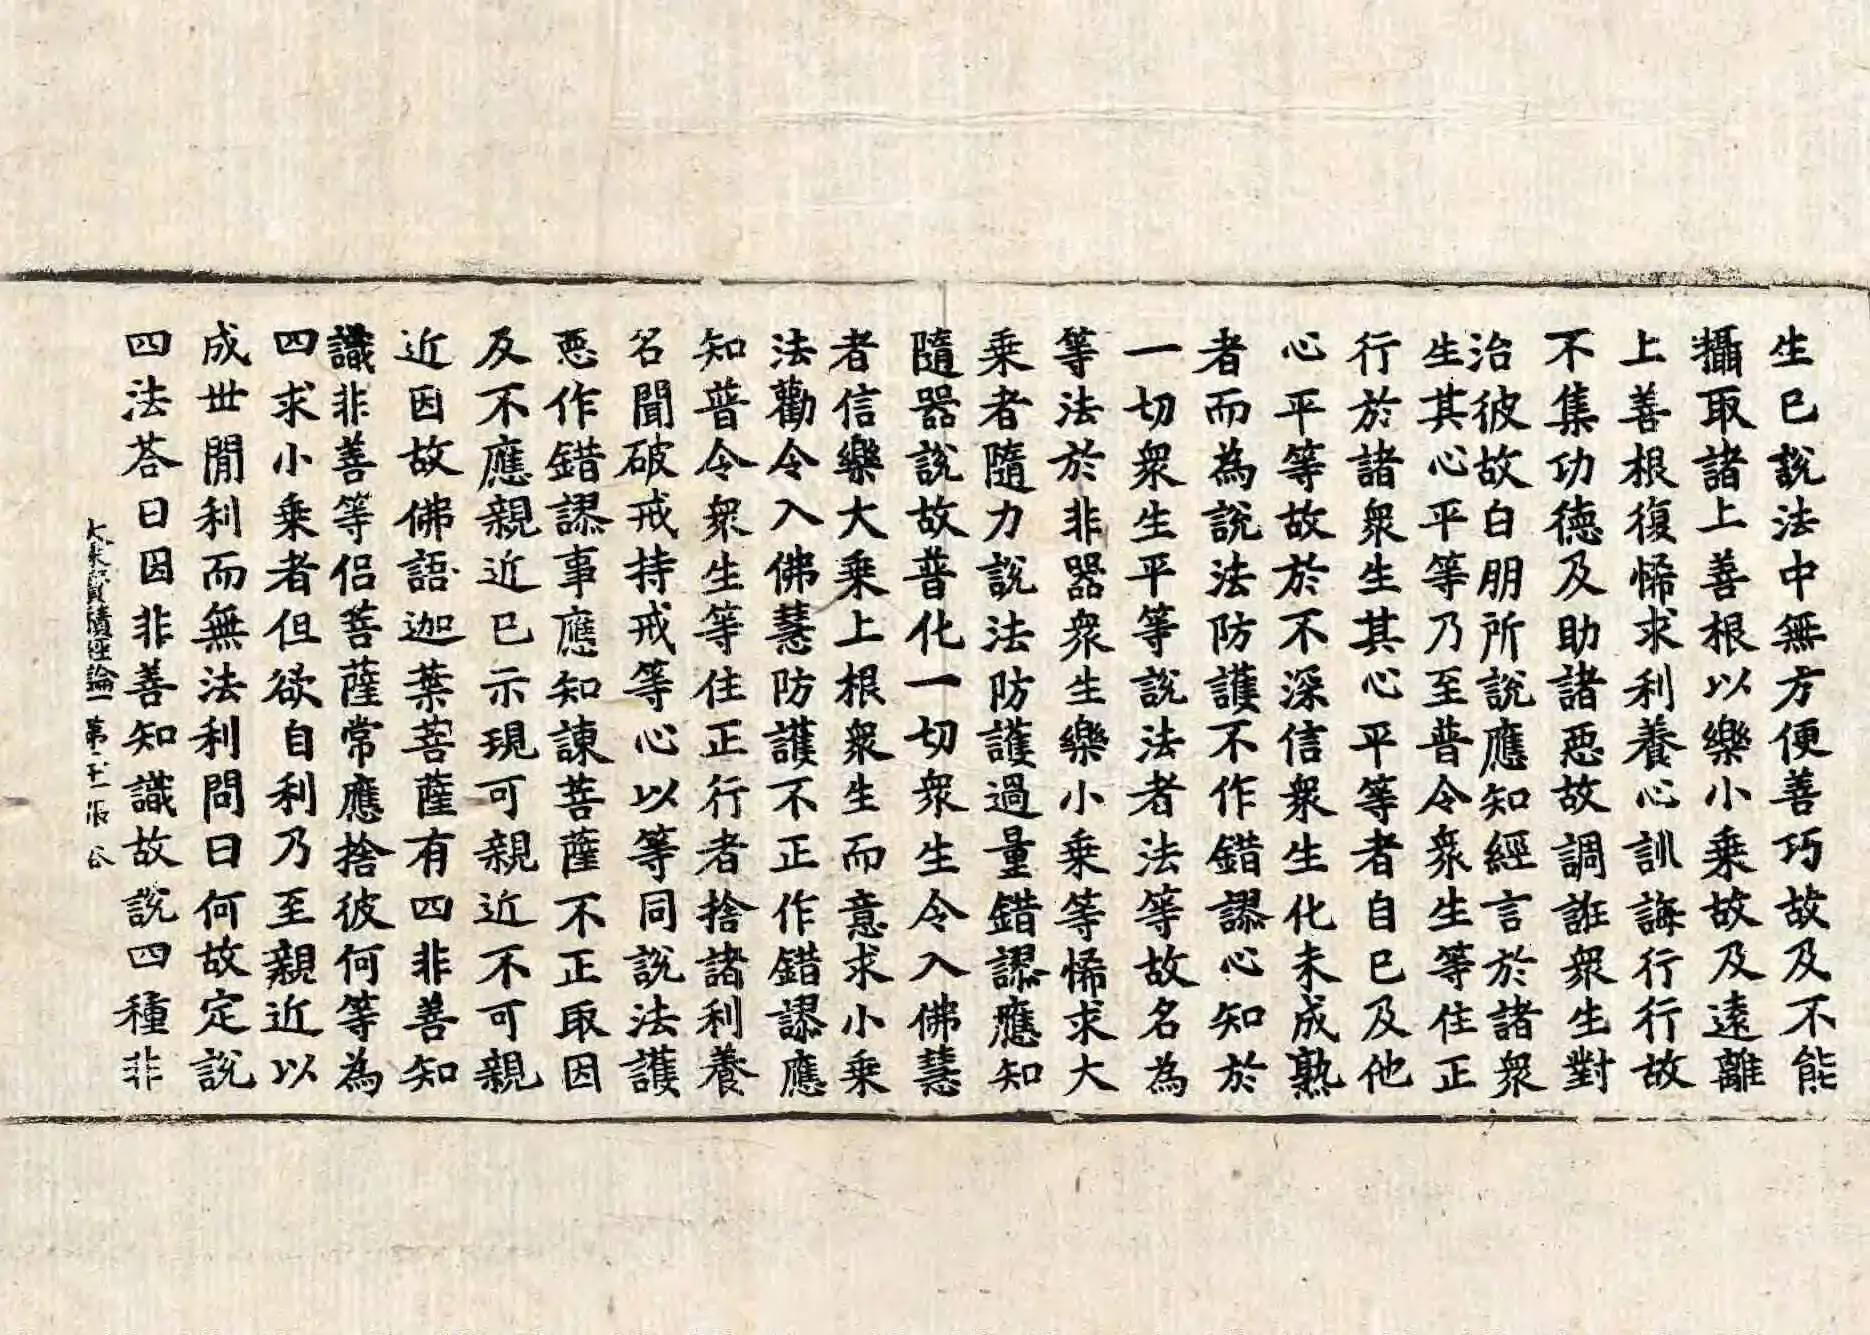 生已說法中無方便善巧故及不能
攝取諸上善根以樂小乘故及遠離
上善根復悕求利養心訓誨行行故
不集功德及助諸惡故調誑衆生對
治彼故白朋所說應知經言於諸衆
生其心平等乃至普令衆生等住正
行於諸衆生其心平等者自已及他
心平等故於不深信衆生化未成熟
者而為說法防護不作錯謬心知於
一切衆生平等說法者法等故名為
等法於非器衆生樂小乘等悕求大
乘者隨力說法防護過量錯謬應知
隨器說故普化一切衆生令入佛慧
者信樂大乘上根衆生而意求小乘
法勸令入佛慧防護不正作錯謬應
知普令衆生等住正行者捨諸利養
名聞破戒持戒等心以等同說法護
惡作錯謬事應知諫菩薩不正取因
及不應親近已示現可親近不可親
近因故佛語迦葉菩薩有四非善知
識非善等侶菩薩常應捨彼何等為
四求小乘者但欲自利乃至親近以
成世閒利而無法利問曰何故定說
四法荅曰因非善知識故說四種非
大乘寶積經論一第 張 谷